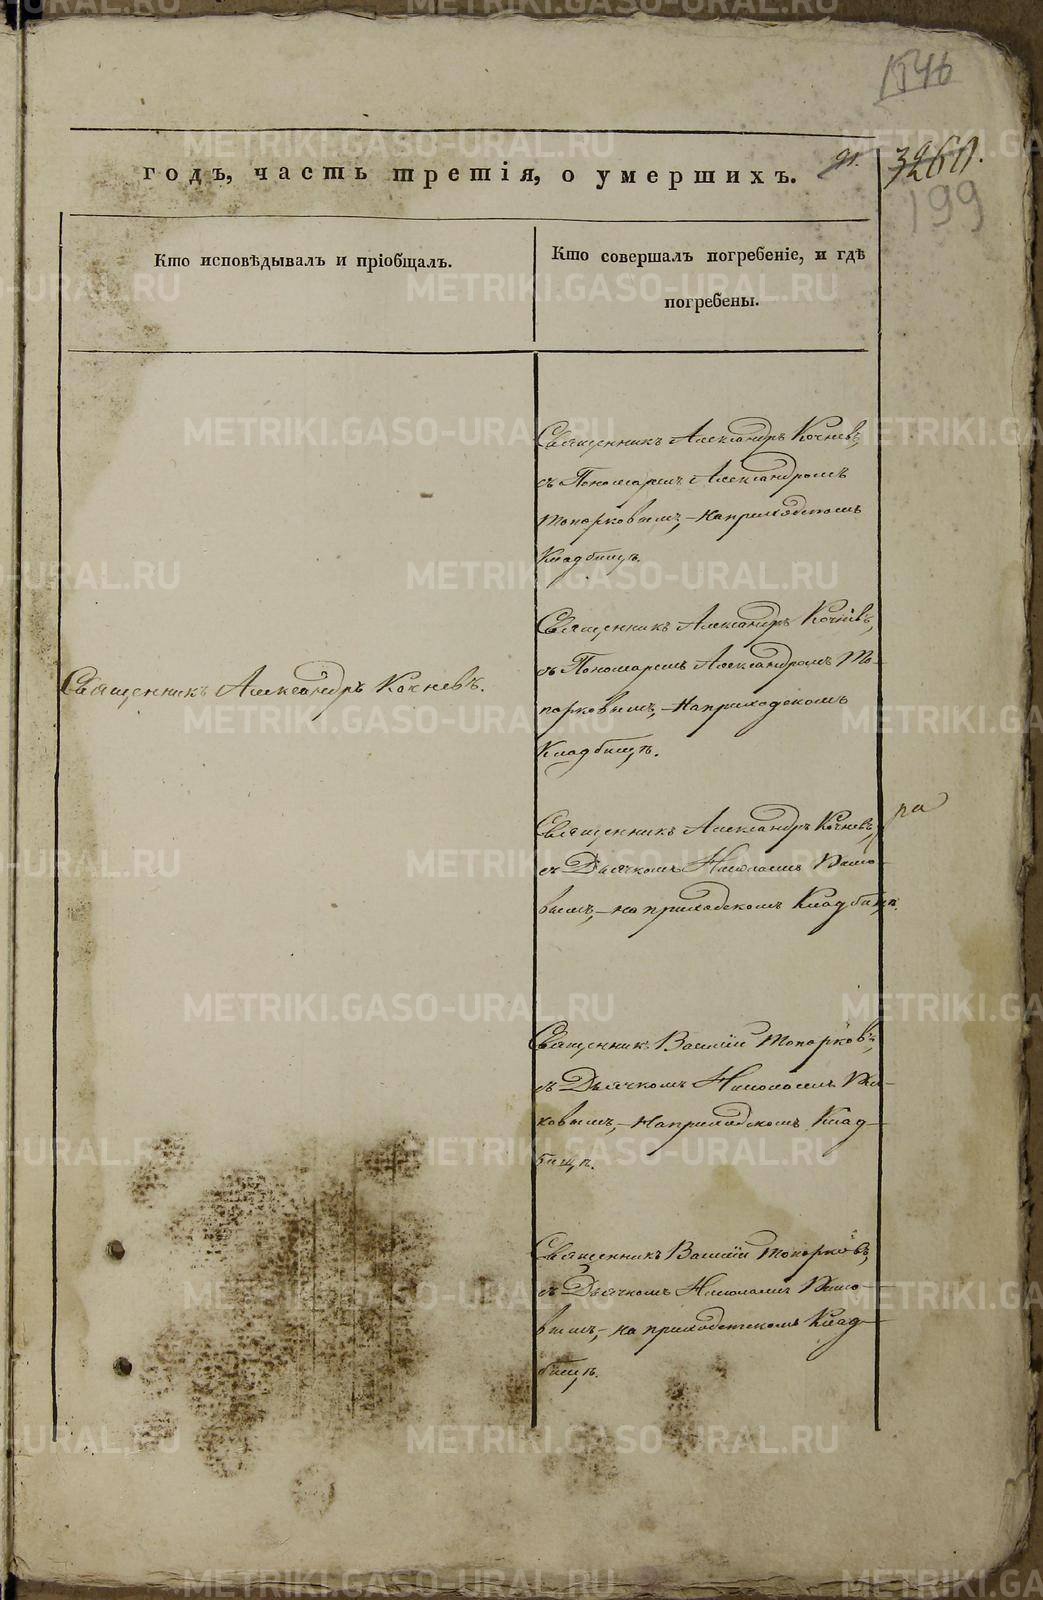 1546
годъ, часть третія, о умершихъ.
199
Кто исповѣдывалъ и пріобщалъ.
Кто совершалъ погребеніе, и гдѣ
погребены.
Священникъ Александръ Кочневъ,
съ Пономаремъ Александромъ
Топорковымъ, – на приходскомъ
Кладбищѣ.
Священникъ Александръ Кочневъ.
Священникъ Александръ Кочневъ,
съ Пономаремъ Александромъ То-
порковымъ, – на приходскомъ
Кладбищѣ.
Священникъ Александръ Кочневъ,
съ Дьячкомъ Николаемъ
вымъ, – на приходскомъ Кладбищѣ.
Священникъ Василій Топорковъ,
съ Дьячкомъ Николаемъ
ковымъ, – на приходскомъ Клад-
бищѣ.
Священникъ Василій Топорковъ,
съ Дьячкомъ Николаемъ
вымъ, – на приходскомъ Клад-
бищѣ.
METRIKI.GASO-URAL.RU